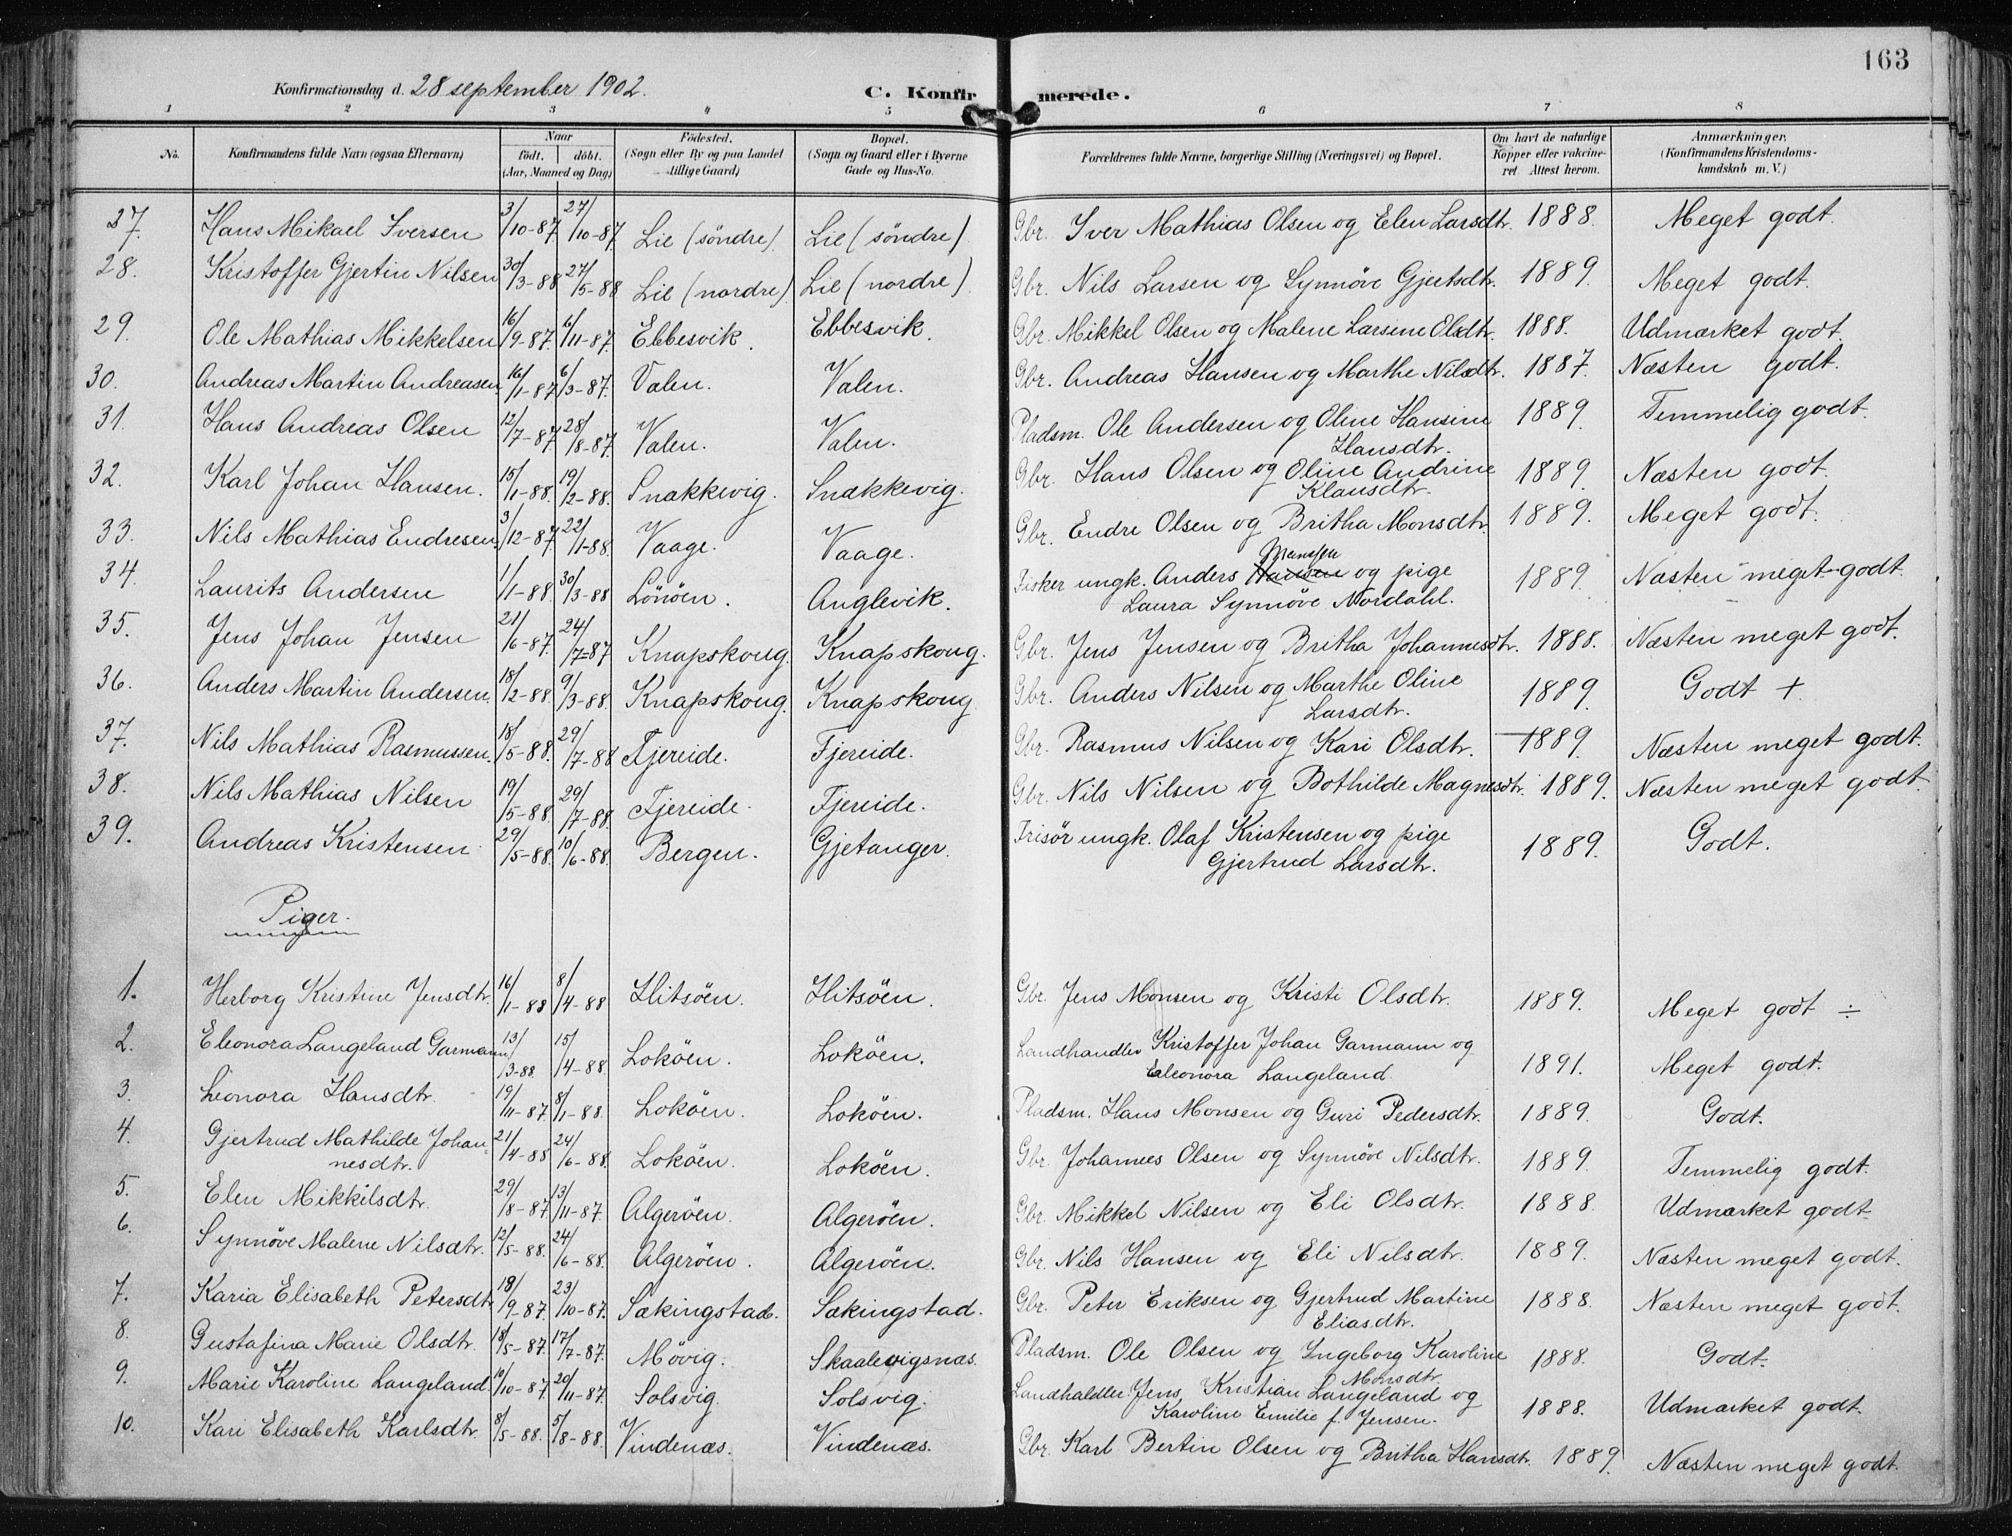 163
Konfirmationsdag d. 28 september 1902.
C. Konfirmerede.
1 2 3 4 5 6 7 8
No. Konfirmandens fulde Navn (ogsaa Efternavn) Naar født. døbt. (Aar, Maaned og Dag) Fødested. (Sogn eller By og paa Landet tillige Gaard) Bopæl. (Sogn og Gaard eller i Byerne Gade og Hus-No. Forældrenes fulde Navne, borgerlige Stilling (Næringsvei) og Bopæl. Om havt de naturlige Kopper eller vakcineret. Attest herom. Anmærkninger. (Konfirmandens Kristendomskundskab m. V.)
27. Hans Mikael Iversen 3/10-87 27/10-87 Lie (søndre) Lie (søndre) Gbr. Iver Mathias Olsen og Elen Larsdtr. 1888. Meget godt.
28. Kristoffer Gjertin Nilsen 30/3-88 27/5-88 Lie (nordre) Lie (nordre) Gbr. Nils Larsen og Synnøve Gjertsdtr. 1889. Meget godt.
29. Ole Mathias Mikkelsen 16/9-87. 6/11-87. Ebbesvik. Ebbesvik. Gbr. Mikkel Olsen og Malene Larsine Olsdtr. 1888. Udmærket godt.
30. Andreas Martin Andreasen 16/1-87 6/3-87. Valen. Valen. Gbr. Andreas Hansen og Marthe Nilsdtr. 1887. Næsten godt.
31. Hans Andreas Olsen 12/7-87. 28/8-87. Valen. Valen. Pladsm. Ole Andersen og Oline Hansine Hansdtr. 1889. Temmelig godt.
32. Karl Johan Hansen. 15/1-88. 19/2-88. Snækkevig. Snækkevig. Gbr. Hans Olsen og Oline Andrine Klausdtr. 1889. Næsten godt.
33. Nils Mathias Endresen. 3/12-87. 22/1-88. Vaage. Vaage. Gbr. Endre Olsen og Britha Monsdtr. 1889. Meget godt.
34. Laurits Andersen 1/1-88. 30/3-88 Lönöen. Anglevik. Fisker ungk. Anders Hansen Monssen og pige Laura Synnøve Nordahl. 1889. Næsten meget godt.
35. Jens Johan Jensen 21/6-87. 24/7-87 Knapskoug. Knapskoug. Gbr. Jens Jensen og Britha Johannesdtr. 1888. Næsten meget godt.
36. Anders Martin Andersen. 18/2-88. 9/3-88. Knapskoug. Knapskoug Gbr. Anders Nilsen og Marthe Oline Larsdtr. 1889. Godt +
37. Nils Mathias Rasmussen. 18/5-88. 29/7-88 Fjereide. Fjereide. Gbr. Rasmus Nilsen og Kari Olsdtr. 1889. Næsten meget godt.
38. Nils Mathias Nilsen 19/5-88. 29/7-88. Fjereide. Fjereide. Gbr. Nils Nilsen og Bothilde Magnesdtr. 1889. Næsten meget godt.
39. Andreas Kristensen 29/5-88. 10/6-88. Bergen. Gjetanger. Frisör ungk. Olaf Kristensen og pige Gjertrud Larsdtr. 1889. Godt.
Piger.
1. Herborg Kristine Jensdtr. 16/1-88 8/4-88 Hitsöen. Hitsöen. Gbr. Jens Monsen og Kristi Olsdtr. 1889. Meget godt ÷
2. Eleonora Langeland Garmann 13/3-88. 15/4-88. Loköen. Loköen. Landhandler Kristoffer Johan Garmann og Eleonora Langeland. 1891. Meget godt.
3. Leonora Hansdtr. 19/11-87 8/1-88. Loköen. Loköen. Pladsm. Hans Monsen og Guri Pedersdtr. 1889. Godt.
4. Gjertrud Mathilde Johannesdtr. 21/4-88 24/6-88. Loköen. Loköen. Gbr. Johannes Olsen og Synnøve Nilsdtr. 1889. Temmelig godt.
5. Elen Mikkelsdtr. 29/8-87 13/11-87. Algeröen. Algeröen. Gbr. Mikkel Nilsen og Eli Olsdtr. 1888. Udmærket godt.
6. Synnøve Malene Nilsdtr. 12/5-88. 24/6-88. Algeröen. Algeröen. Gbr. Nils Hansen og Eli Nilsdtr. 1889. Næsten meget godt.
7. Karia Elisabeth Petersdtr. 18/9-87. 23/10-87. Sækingstad. Sækingstad. Gbr. Peter Eriksen og Gjertrud Martine Eliasdtr. 1888. Næsten meget godt.
8. Gustafina Marie Olsdtr. 18/5-87. 17/7-87. Mövig. Skaalevigsnæs. Pladsm. Ole Olsen og Ingeborg Karoline Monsdtr. 1888. Godt.
9. Marie Karoline Langeland. 10/10-87 20/11-87. Solsvig. Solsvig. Landhaldler Jens Kristian Langeland og Karoline Emilie f. Jensen. 1888. Udmærket godt.
10. Kari Elisabeth Karlsdtr. 8/5-88. 5/8-88. Vindenæs. Vindenæs. Gbr. Karl Bertin Olsen og Britha Hansdtr. 1889. Næsten meget godt.